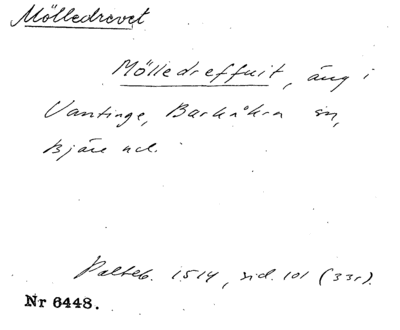 Mölledrevet
Mölledreffuit, äng i
Vantinge, Barkåkra sn,
Bjäre hd.
Palteb. 1514, sid. 101 (33r).
Nr 6448.